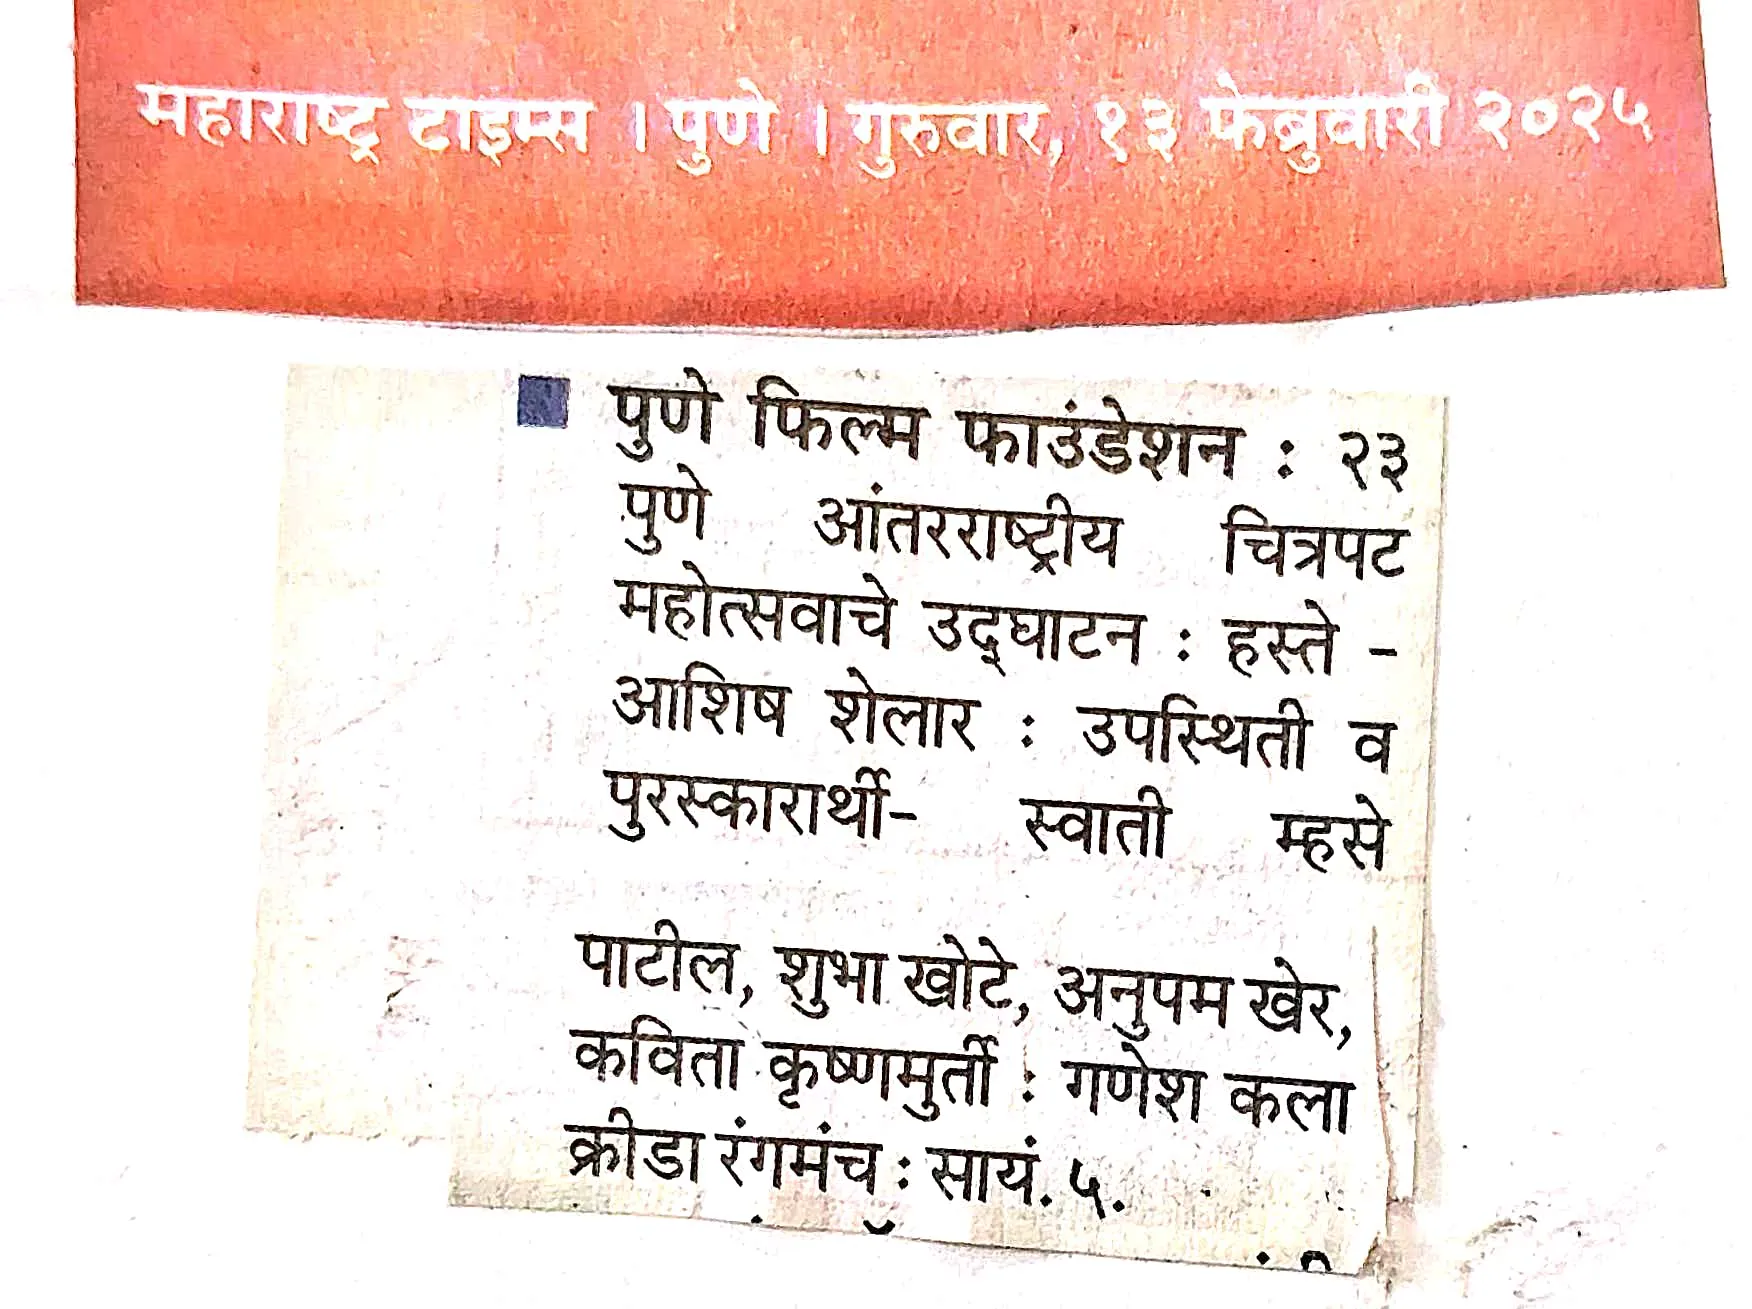 महाराष्ट्र टाइम्स । पुणे । गुरुवार, १३ फेब्रुवारी २०२५
पुणे फिल्म फाउंडेशन : २३
पुणे आंतरराष्ट्रीय चित्रपट
महोत्सवाचे उद्‌घाटन : हस्ते -
आशिष शेलार : उपस्थिती व
पुरस्कारार्थी- स्वाती म्हसे
पाटील, शुभा खोटे, अनुपम खेर,
कविता कृष्णमुर्ती : गणेश कला
क्रीडा रंगमंच : सायं. ५.